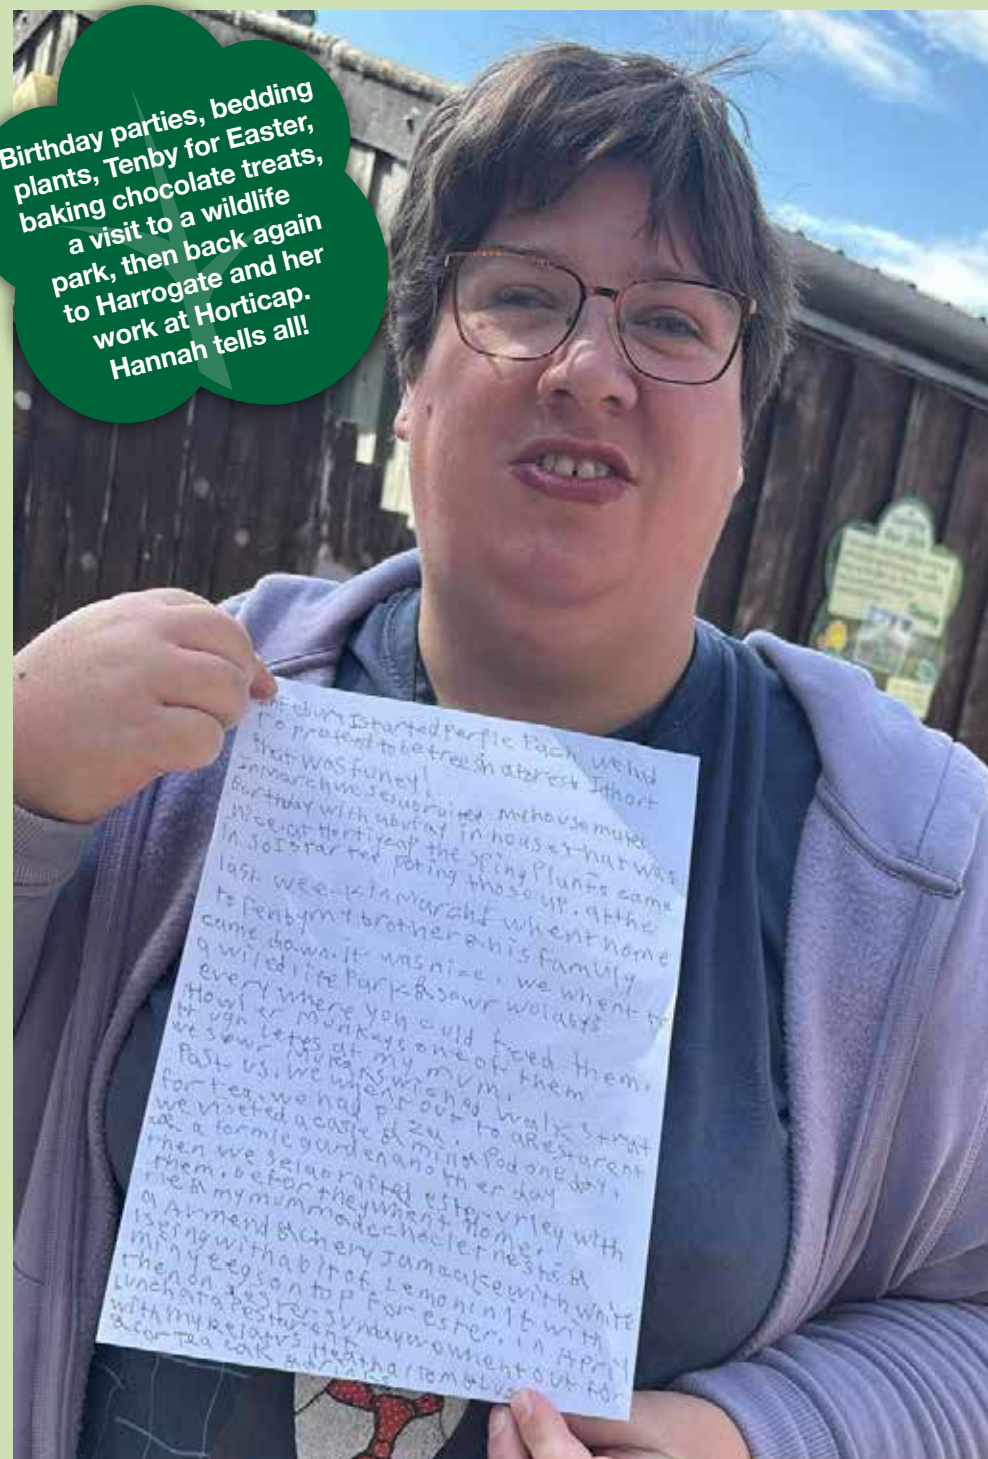 Birthday parties, bedding
plants, Tenby for Easter,
baking chocolate treats,
a visit to a wildlife
park, then back again
to Harrogate and her
work at Horticap.
Hannah tells all!
I started Perple Pach we had
to pretend to be trees in a forest I thort
that was funey!
In march we selabruited my housemates
burthday with a bufay in house that was
nice. at Horticap the spring Plants came
in so I started poting those up. at the
last week in march I whent home
to Tenby my brother & his famuly
came down. it was nice. we whent to
a wiled life Park & sowr wolabys
every where you could feed them.
Howler monkeys one of them
at my mum.
we sowr walk strat
Past us. we whent out to a Resturent
for tea. we had pizza. one day,
we viseted a casle &
a garden another day
then we selabraited ester urley with
them. befor they whent Home.
me & my mum made choclet nests &
a Armend & chery Jam cake with white
ising with a bit of Lemon in it with
miny eegs on top for ester. in April
then on ester sunday we whent out for
Lunch at a resturent
with my relatvs